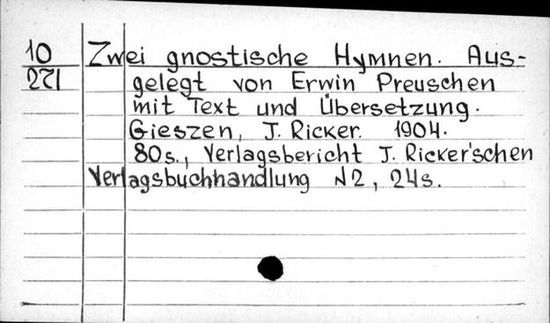 10 Zwei gnostische Hymnen. Aus-
271 gelegt von Erwin Preuschen
mit Text und Übersetzung.
Gieszen, J. Ricker. 1904.
80s., Verlagsbericht J. Ricker'schen
Verlagsbuchhandlung N2, 24s.